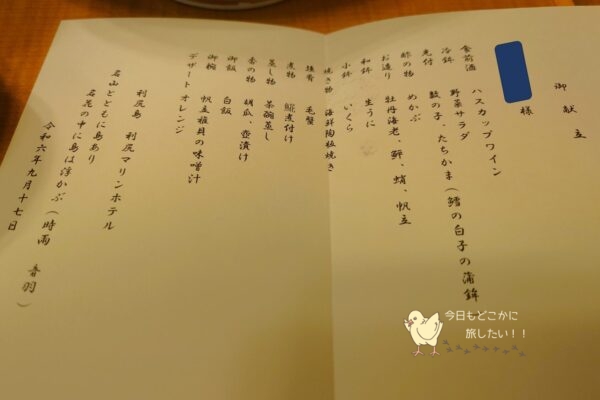 御献立
様
食前酒 ハスカップワイン
冷鉢 野菜サラダ
先付 数の子、たちかま(鱈の白子の蒲鉾
酢の物 めかぶ
お造り 牡丹海老、鮃、蛸、帆立
和鉢 生うに
小鉢 いくら
焼き物 海鮮陶板焼き
毛蟹
煮物 煮付け
蒸し物 茶碗蒸し
香の物 胡瓜、壺漬け
御飯 白飯
御椀 帆立稚貝の味噌汁
デザート オレンジ
利尻島 利尻マリンホテル
名山とともに島あり
名花の中に島は浮かぶ(時雨 音羽)
令和六年九月十七日
今日もどこかに
旅したい!!